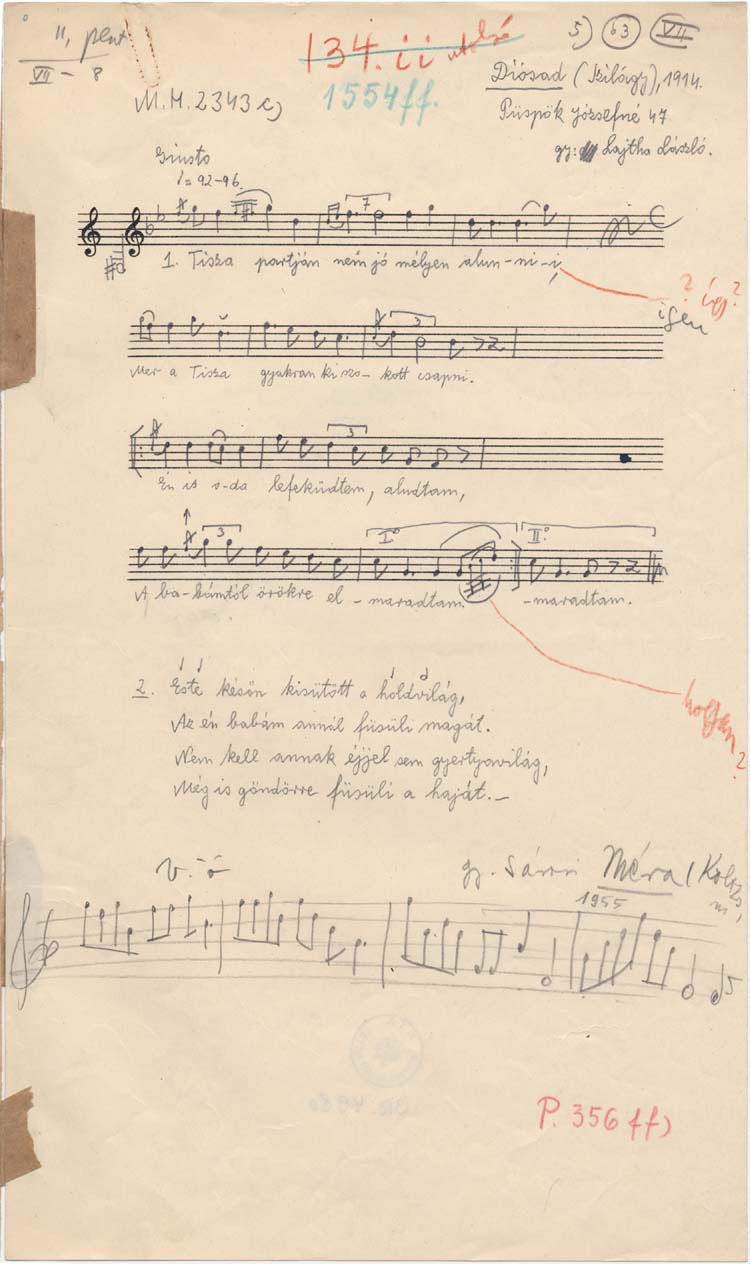 11, pent
VII – 8
134. ii utolsó
1554 ff.
5) 63 VII
M.H. 2343 c)
Diósad (Szilágy), 1914.
Püspök Józsefné 47
gy: Lajtha László.
Giusto
= 92-96.
7
1. Tisza partján nem jó mélyen alun-ni-i,
? így?
igen
3
Mer a Tisza gyakran ki szo- kott csapni.
3
Én is o-da lefeküdtem, aludtam,
3 I° II°
A ba-bámtól örökre el - maradtam. - maradtam.
hogyan?
2. Este későn kisütött a holdvilág,
Az én babám annál füsüli magát.
Nem kell annak éjjel sem gyertyavilág,
Mégis göndörre füsüli a haját.–
V.-ő gy. Sárosi Méra (Kolozs m.)
1955
P. 356 ff)